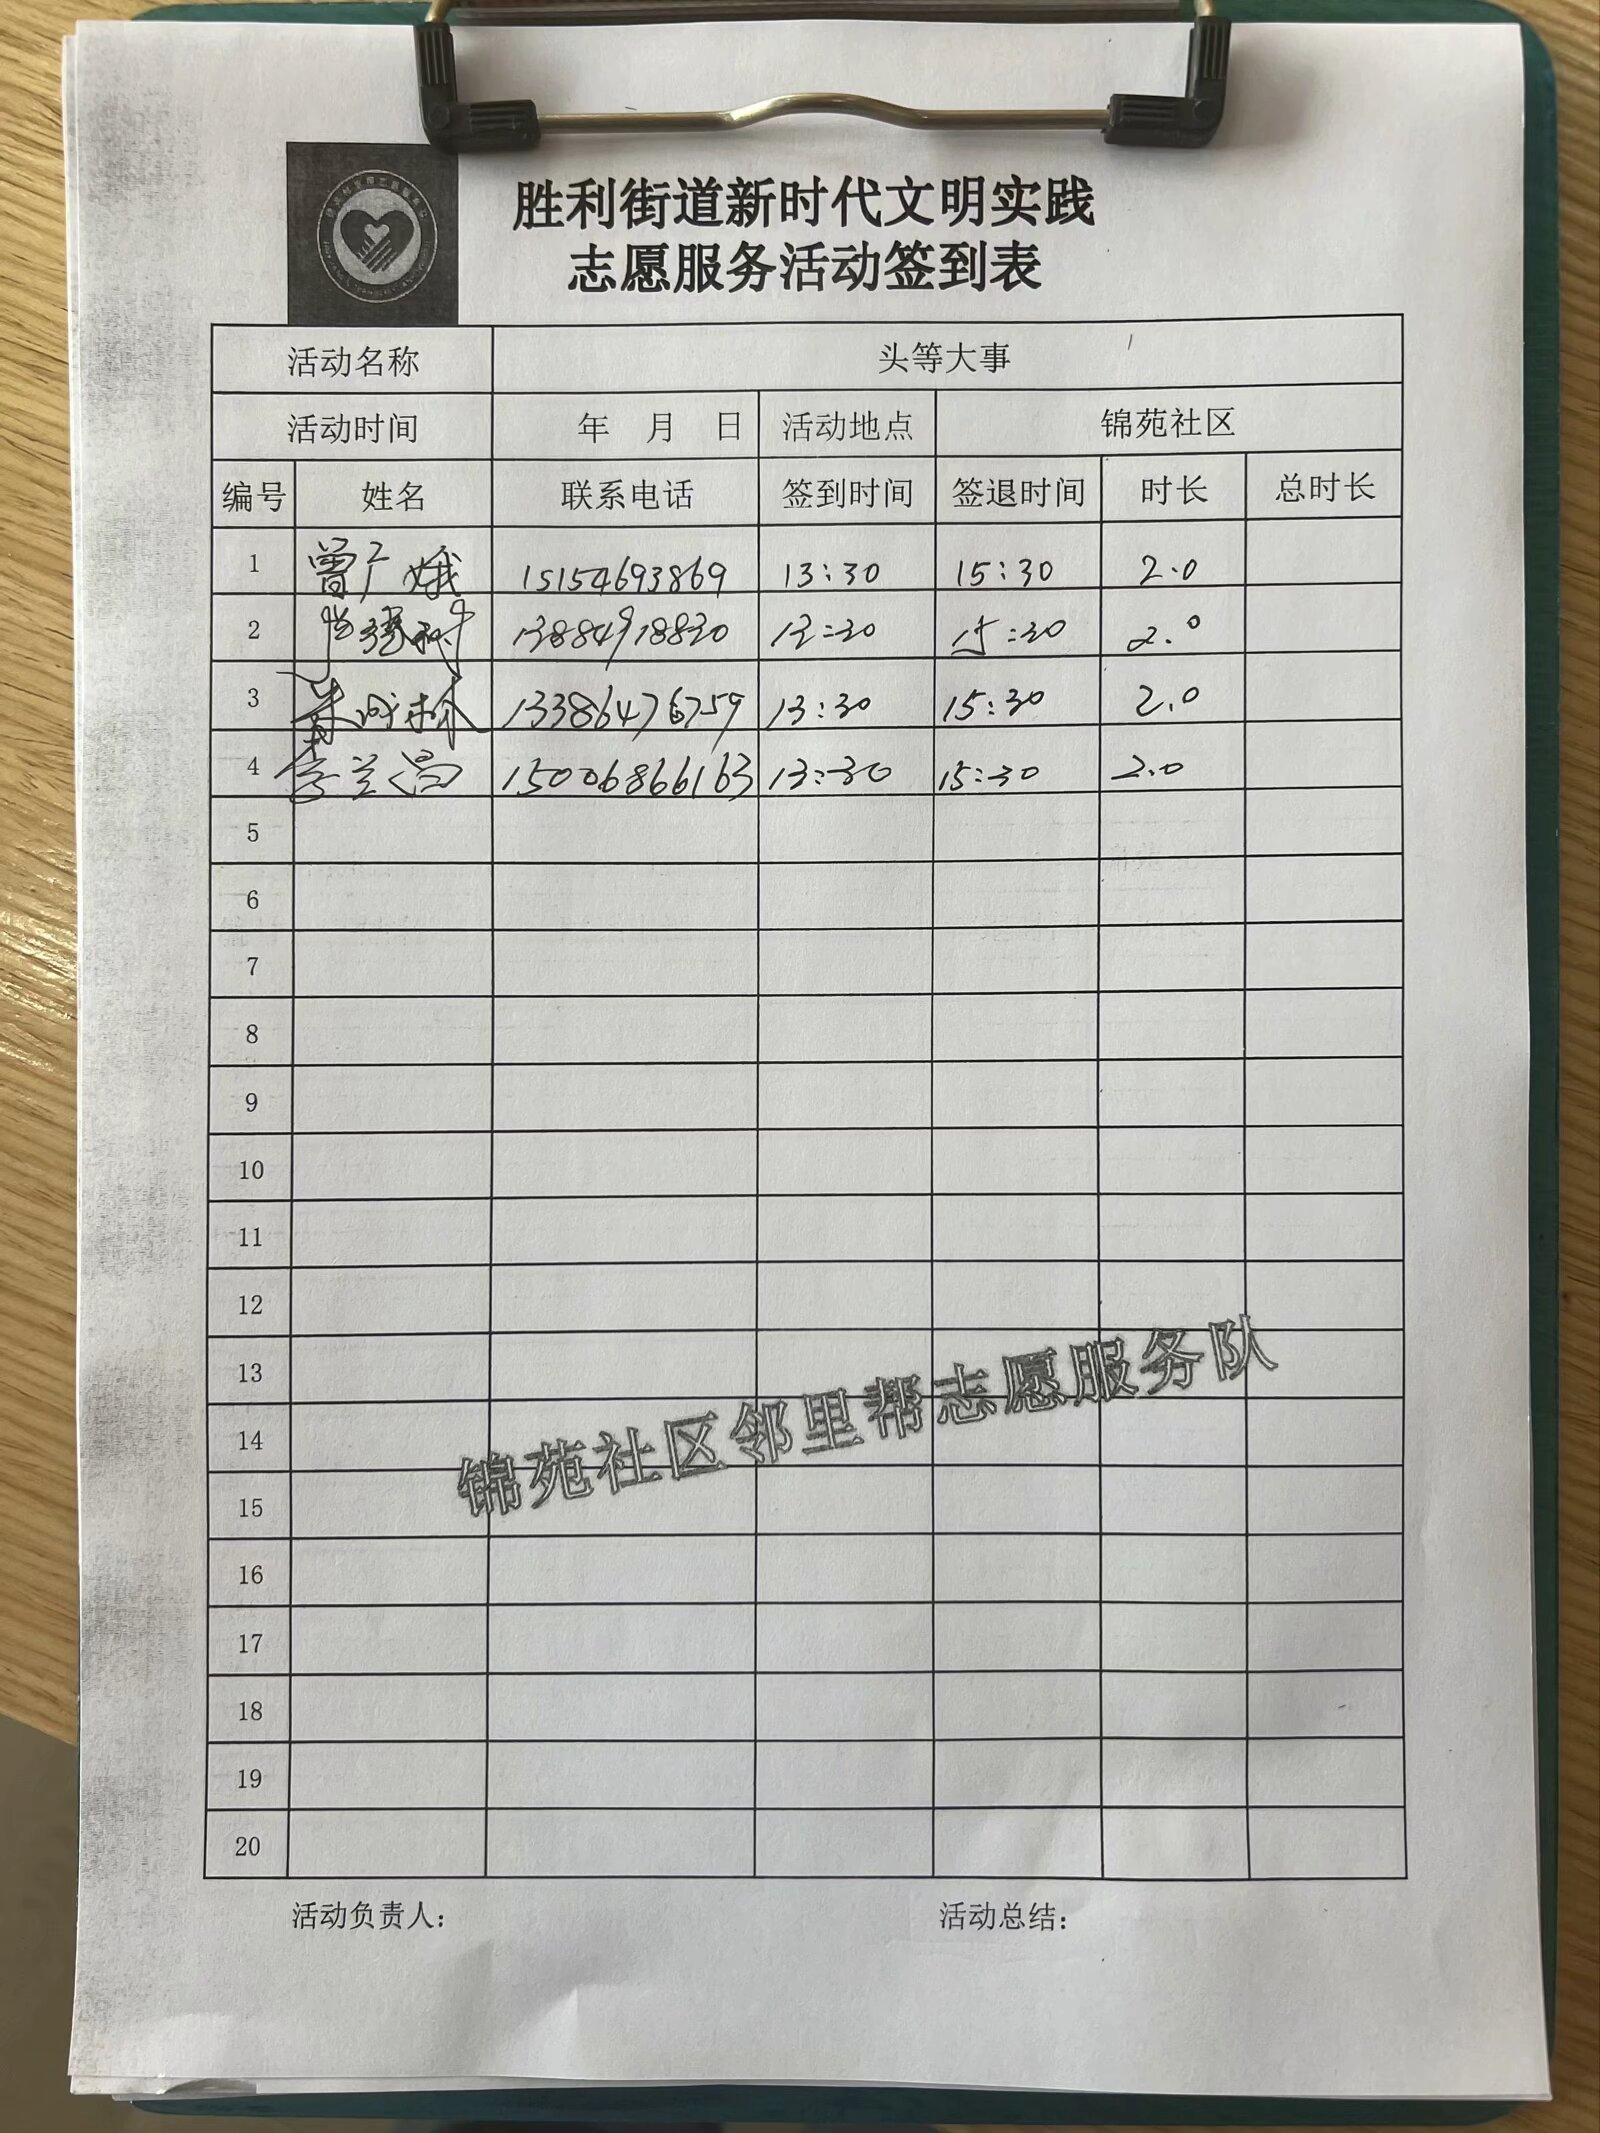 胜利街道新时代文明实践
志愿服务活动签到表
活动名称 头等大事
活动时间 年 月 日 活动地点 锦苑社区
编号 姓名 联系电话 签到时间 签退时间 时长 总时长
1 曾广娥 15154693869 13:30 15:30 2.0
2 13884918830 13:30 15:30 2.0
3 13386476759 13:30 15:30 2.0
4 李兰昌 15006866163 13:30 15:30 2.0
5
6
7
8
9
10
11
12
13
14
15
16
17
18
19
20
锦苑社区邻里帮志愿服务队
活动负责人: 活动总结: